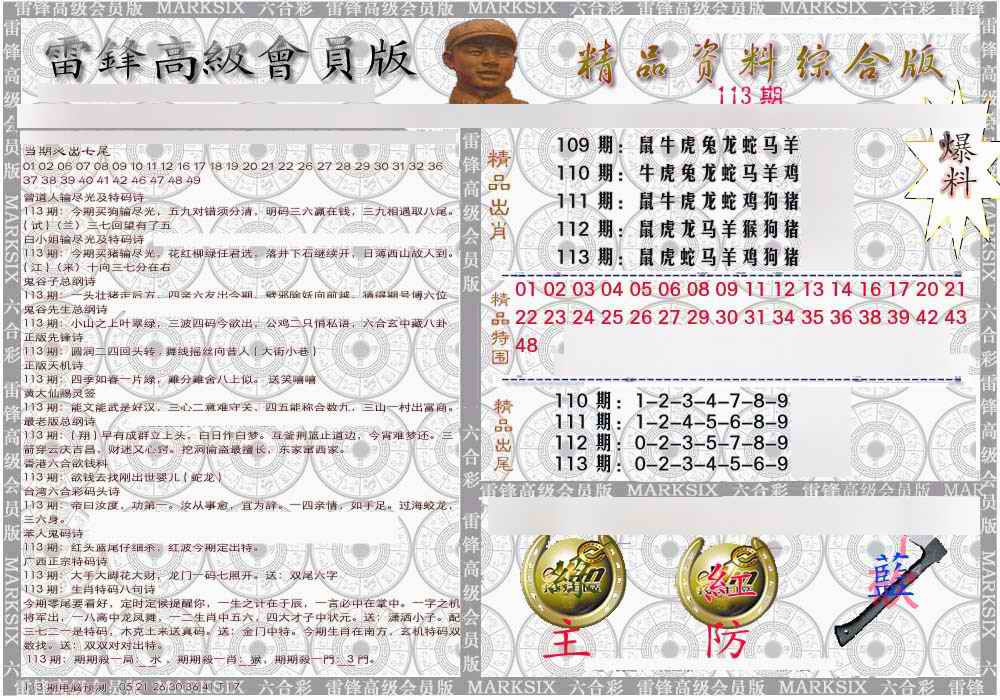 雷锋高级会员版 MARKSIX 六合彩 雷锋高级会员版 MARKSIX 六合彩 雷锋高级会员版 MARKSIX 六合彩
雷鋒高級會員版
精品资料综合版
113期
爆料
当期必出七尾
01 02 06 07 08 09 10 11 12 16 17 18 19 20 21 22 26 27 28 29 30 31 32 36
37 38 39 40 41 42 46 47 48 49
曾道人输尽光及特码诗
113期：今期买狗输尽光，五九对错须分清，明码三六赢在钱，三九相遇取八尾。
{试}（兰）三七回望有了五
白小姐输尽光及特码诗
113期：今期买猪输尽光，花红柳绿任君选，落井下石继续开，日薄西山故人到。
{江}（米）十向三七分在右
鬼谷子总纲诗
113期：一头壮猪走后方，四亲六友出今期，劈邪除妖向前越，猜得期号博六位
鬼谷先生总纲诗
113期：小山之上叶翠绿，三波四码今欲出，公鸡二只悄私语，六合玄中藏八卦
正版先锋诗
113期：圆润二四回头转，舞线摇丝向昔人{大街小巷}
正版天机诗
113期：四季如春一片绿，難分難舍八上似。 送笑嘻嘻
黄大仙赐灵签
113期：能文能武是好汉，三心二意难守关，四五能称合数九，三山一村出富商。
最老版总纲诗
113期：{翔}早有成群立上头，白日作白梦。互鉴荆篮止道边，今宵难梦还。三
箭穿云庆吉昌，财迷又心窍。挖洞偷盗最擅长，东家窜西家。
香港六合欲钱料
113期：欲钱去找刚出世婴儿{蛇龙}
台湾六合彩码头诗
113期：帝曰汝度，功第一。汝从事愈，宜为辞。一四亲情，如手足。过海蛟龙，
三六身。
本人鬼码诗
113期：红头蓝尾仔细杀，红波今期定出特。
广西正宗特码诗
113期：大手大脚花大财，龙门一码七照开。送：双尾六字
113期：生肖特码八句诗
今期零尾要看好，定时定候提醒你，一生之计在于辰，一言必中在掌中。一字之机
将军出，一八高中龙凤舞，一二生肖中五六，四大才子中状元。送：潇洒小子。配
三七二一是特码，木克土来送真码。送：金门中特。今期生肖在南方，玄机特码双
数找。送：双双对对出特。
113期：期期殺一局：水，期期殺一肖：猴，期期殺一門：3門。
113期电脑预测：05 21 26 30 36 41 T17
精品出肖
109 期：鼠牛虎兔龙蛇马羊
110 期：牛虎兔龙蛇马羊鸡
111 期：鼠牛虎龙蛇鸡狗猪
112 期：鼠虎龙马羊猴狗猪
113 期：鼠虎蛇马羊鸡狗猪
精品特围
01 02 03 04 05 06 08 09 11 12 13 14 16 17 20 21
22 23 24 25 26 27 29 30 31 34 35 36 38 39 42 43
48
精品出尾
110 期：1-2-3-4-7-8-9
111 期：1-2-4-5-6-8-9
112 期：0-2-3-5-7-8-9
113 期：0-2-3-4-5-6-9
雷锋高级会员版 MARKSIX 六合彩 雷锋高级会员版
綠
紅
藍
主
防
雷锋高级会员版 MARKSIX 六合彩 雷锋高级会员版 MARKSIX